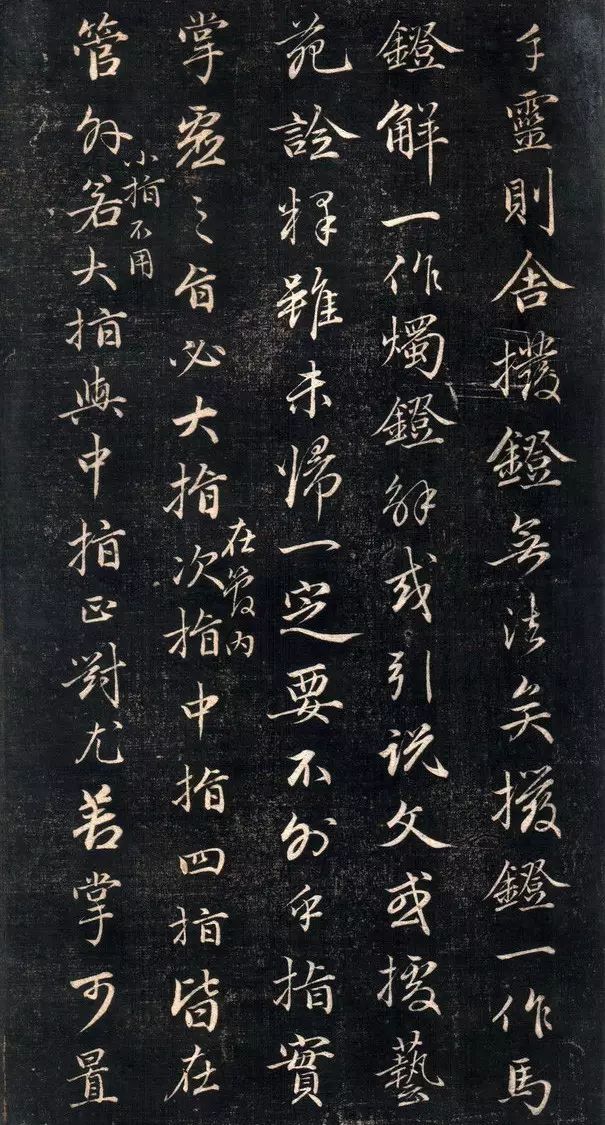 手靈則舍撥鐙無法矣撥鐙一作馬
鐙解一作燭鐙解或引説文或援藝
苑詮釋雖未歸一定要不外乎指實
掌虛之旨必大指次指中指四指皆在
在管内
管外若大指與中指正對尤若掌可置
小指不用